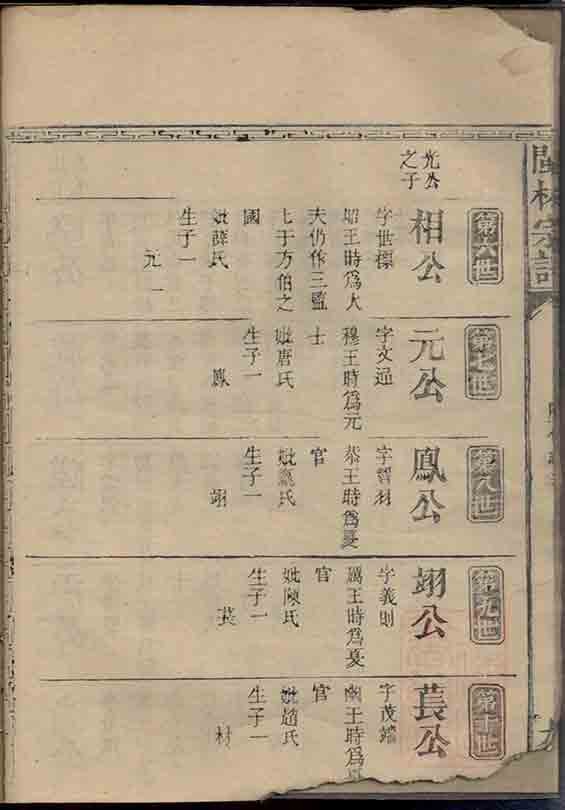 閩林宗譜
第六世
光公
之子
相公
字世標
昭王時爲大
夫仍作三監
七于方伯之
國
妣薛氏
生子一
元一
第七世
元公
字文通
穆王時爲元
士
妣唐氏
生子一
鳳
第八世
鳳公
字
恭王時爲夏
官
氏
生子一
翊
第九世
翊公
字義則
厲王時爲夏
官
妣陳氏
生子一
萇
第十世
萇公
字茂
幽王時爲
官
妣趙氏
生子一
材
九